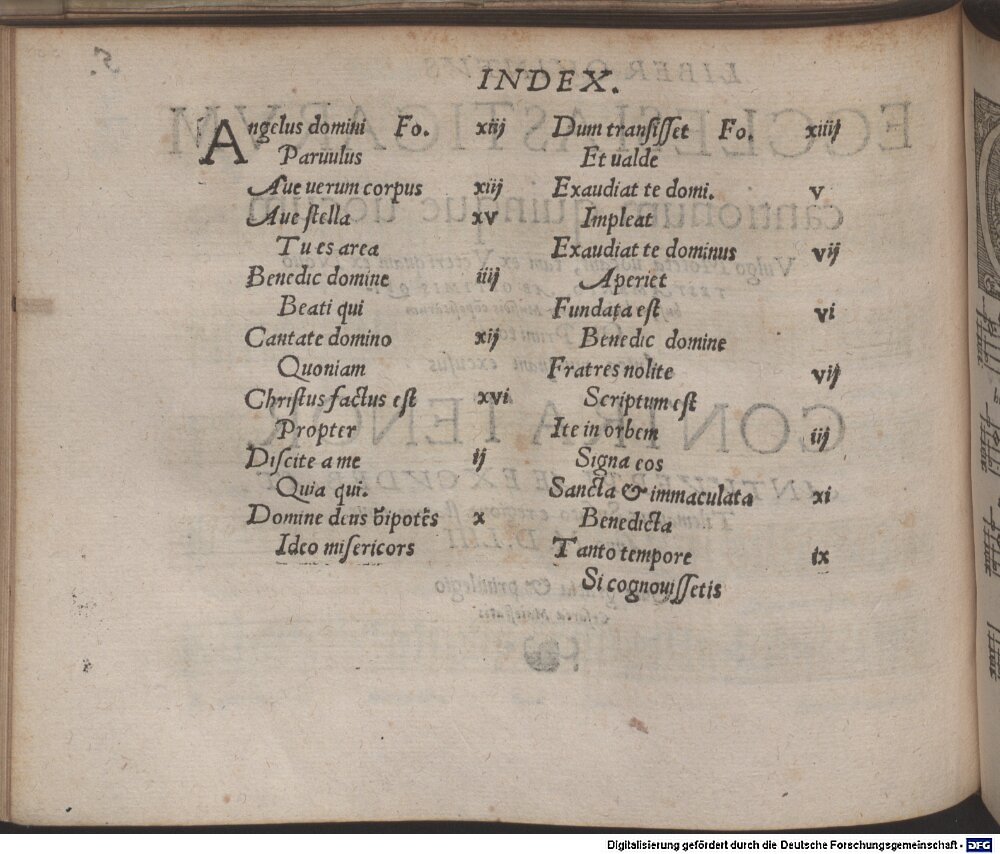 INDEX.
Angelus domini Fo. xiij
Paruulus
Aue uerum corpus xiij
Aue stella xv
Tu es area
Benedic domine iiij
Beati qui
Cantate domino xij
Quoniam
Christus factus est xvi
Propter
Discite a me ij
Quia qui.
Domine deus x
Ideo misericors
Dum transisset Fo. xiiij
Et ualde
Exaudiat te domi. v
Impleat
Exaudiat te dominus vij
Aperiet
Fundata est vi
Benedic domine
Fratres nolite vij
Scriptum est
Ite in orbem iij
Signa eos
Sancta & immaculata xi
Benedicta
Tanto tempore ix
Si cognouissetis
Digitalisierung gefördert durch die Deutsche Forschungsgemeinschaft - DFG